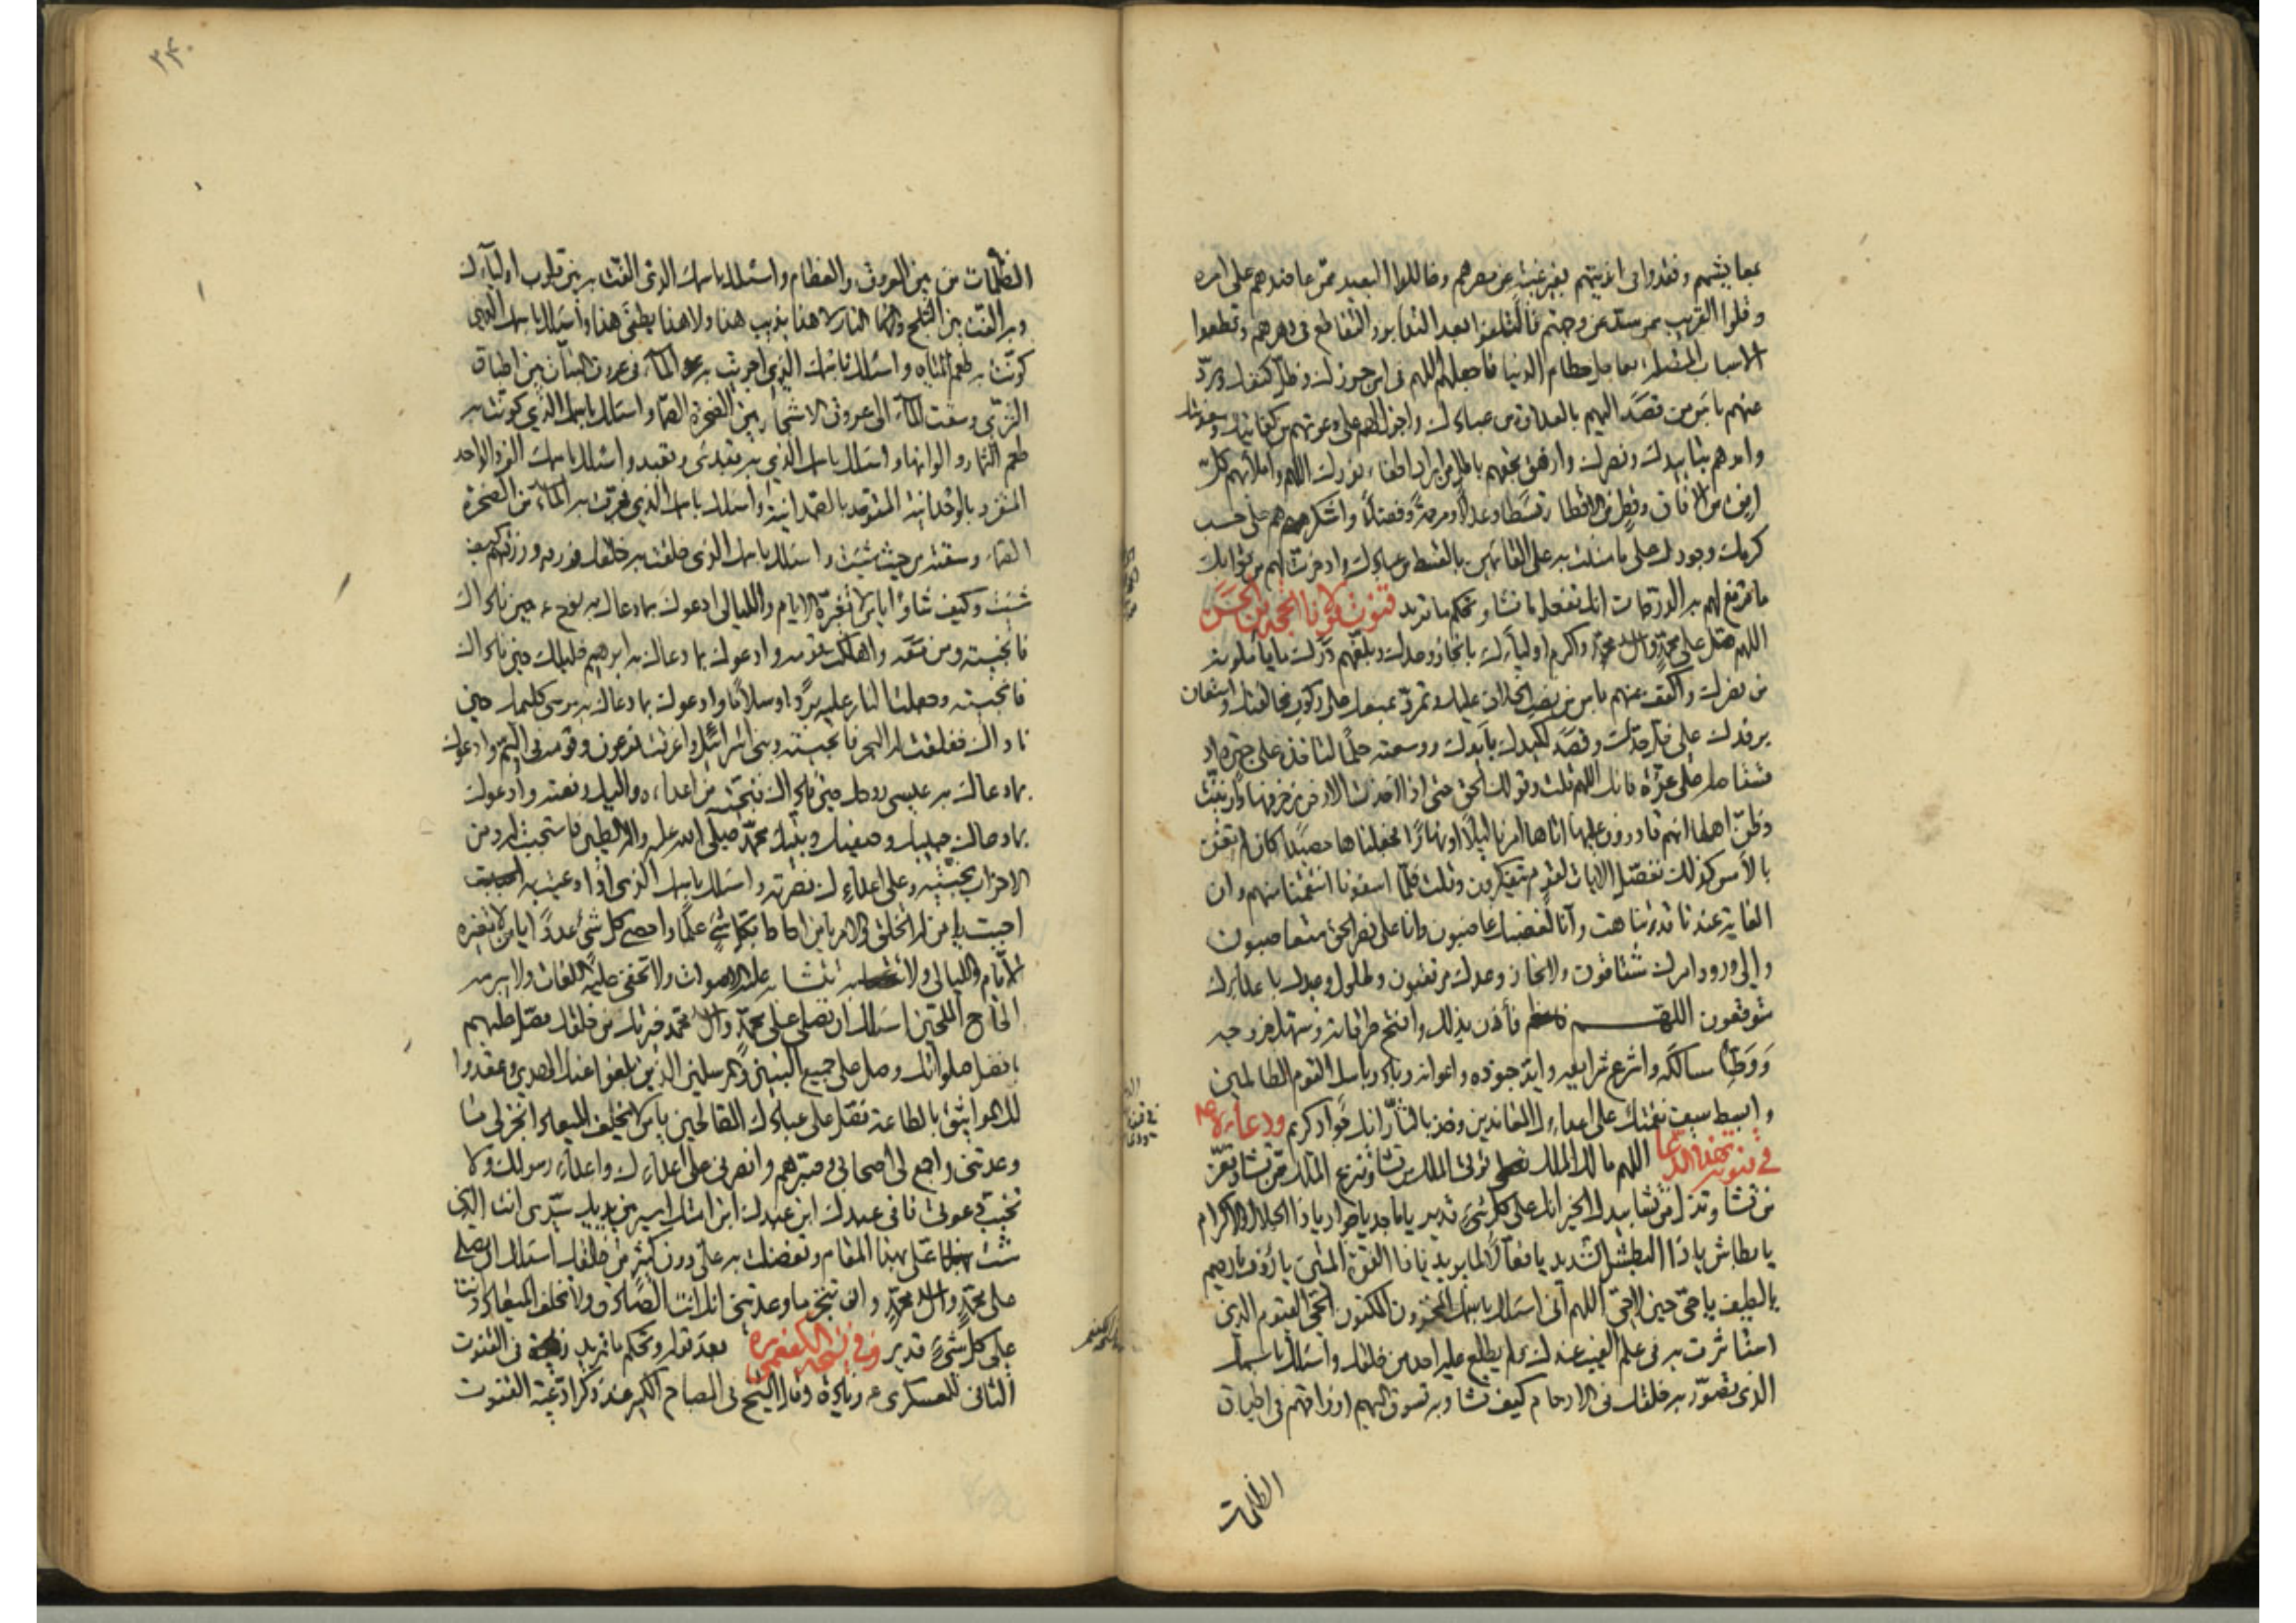 بمعايشهم وفقدوا في انديتهم بغير غيبة عن مصرهم وحاللوا البعيد ممن عاضدهم على امره
وقلوا القريب ممن صد عن وجهتم فائتلفوا بعد التدابر والتقاطع في دهرهم وقطعوا
الاسباب المتصلة بعاجل حطام الدنيا فاجعلهم اللهم في امن حرزك وظل كنفك ورد
عنهم باس من قصد اليهم بالعداوة من عبادك واجزل لهم على دعوتهم من كفايتك ومعونتك
وامدهم بتاييدك ونصرك وازهق بحقهم باطل من اراد اطفاء نورك اللهم واملأ بهم كل
افق من الافاق وقطر من الاقطار قسطا وعدلا ومرحمة وفضلا واشكرهم على حسب
كرمك وجودك على ما مننت به على القائمين بالقسط من عبادك وادخرت لهم من ثوابك
ما ترفع لهم به الدرجات انك تفعل ما تشاء وتحكم ما تريد قنوت مولانا الحجة بن الحسن
اللهم صل على محمد وال محمد واكرم اولياءك بانجاز وعدك وبلغهم درك ما يأملونه
من نصرك واكفف عنهم باس من نصب الخلاف عليك وتمرد بمنعك على ركوب مخالفتك واستعان
برفدك على فل حدك وقصد لكيدك بايدك ووسعته حلما لتاخذه على جهرة او
تستاصله على عزة فانك اللهم قلت وقولك الحق حتى اذا اخذت الارض زخرفها وازينت
وظن اهلها انهم قادرون عليها اتاها امرنا ليلا او نهارا فجعلناها حصيدا كان لم تغن
بالامس كذلك نفصل الايات لقوم يتفكرون وقلت فلما اسفونا انتقمنا منهم وان
الغاية عندنا قد تناهت وانا لغضبك غاضبون وانا على نصر الحق متعاصبون
والى ورود امرك مشتاقون ولانجاز وعدك مرتقبون ولحلول وعيدك باعدائك
متوقعون اللهم فأذن بذلك وافتح طرقاته وسهل خروجه
ووطئ مسالكه واشرع شرايعه وايد جنوده واعوانه وبادر باسك القوم الظالمين
وابسط سيف نقمتك على اعدائك المعاندين وخذ بالثار انك جواد كريم ودعاء
في قنوته بهذا الدعاء اللهم مالك الملك تؤتي الملك من تشاء وتنزع الملك ممن تشاء وتعز
من تشاء وتذل من تشاء بيدك الخير انك على كل شئ قدير يا ماجد يا جواد يا ذا الجلال والاكرام
يا بطاش يا ذا البطش الشديد يا فعالا لما يريد يا ذا القوة المتين يا رؤف يا رحيم
يا لطيف يا حي حين لا حي اللهم اني اسئلك باسمك المخزون المكنون الحي القيوم الذي
استاثرت به في علم الغيب عندك لم يطلع عليه احد من خلقك واسئلك باسمك
الذي تصور به خلقك في الارحام كيف تشاء وبه تسوق اليهم ارزاقهم في اطباق
الظلمات
٣٤٠
الظلمات من بين العروق والعظام واسئلك باسمك الذي الفت به بين قلوب اوليائك
وبه الفت بين الثلج والنار لا هذا يذيب هذا ولا هذا يطفئ هذا واسئلك باسمك الذي
كونت به طعم المياه واسئلك باسمك الذي اجريت به الماء في عروق النبات بين اطباق
الثرى وسقت الماء الى عروق الاشجار بين الصخرة الصماء واسئلك باسمك الذي كونت به
طعم الثمار والوانها واسئلك باسمك الذي به تبدئ وتعيد واسئلك باسمك الفرد الواحد
المتفرد بالوحدانية المتوحد بالصمدانية واسئلك باسمك الذي فجرت به الماء من الصخرة
الصماء وسقته من حيث شئت واسئلك باسمك الذي خلقت به خلقك ورزقتهم كيف
شئت وكيف شاؤا يا من لا تغيره الايام والليالي ادعوك بما دعاك به نوح حين ناداك
فانجيته ومن معه واهلكت قومه وادعوك بما دعاك به ابرهيم خليلك حين ناداك
فانجيته وجعلت النار عليه بردا وسلاما وادعوك بما دعاك به موسى كليمك حين
ناداك ففلقت له البحر فانجيته وبني اسرائيل واغرقت فرعون وقومه في اليم وادعوك
بما دعاك به عيسى روحك حين ناداك فنجيته من اعدائه واليك رفعته وادعوك
بما دعاك حبيبك وصفيك ونبيك محمد صلى الله عليه واله فاستجبت له ومن
الاحزاب نجيته وعلى اعدائك نصرته واسئلك باسمك الذي اذا دعيت به
اجبت يا من له الخلق والامر يا من احاط بكل شئ علما واحصى كل شئ عددا يا من لا تغيره
الايام والليالي ولا تتشابه عليه الاصوات ولا تخفى عليه اللغات ولا يبرمه
الحاح الملحين اسئلك ان تصلي على محمد وال محمد خيرتك من خلقك فصل عليهم
بافضل صلواتك وصل على جميع النبيين والمرسلين الذين بلغوا عنك الهدى وعقدوا
لك المواثيق بالطاعة وصل على عبادك الصالحين يا من لا يخلف الميعاد انجز لي ما
وعدتني واجمع لي اصحابي وصبرهم وانصرني على اعدائك واعداء رسولك ولا
تخيب دعوتي فاني عبدك ابن عبدك ابن امتك اسير بين يديك سيدي انت الذي
مننت على بهذا المقام وتفضلت به علي دون كثير من خلقك اسئلك ان تصلي
على محمد وال محمد وان تنجز لي ما وعدتني انك انت الصادق ولا تخلف الميعاد وانت
على كل شئ قدير وفي نسخة الكفعمي بعد قوله وتحكم ما تريد في القنوت
الثاني للعسكري زيادة وقال الشيخ في المصباح الكبير عند ذكر ادعية القنوت